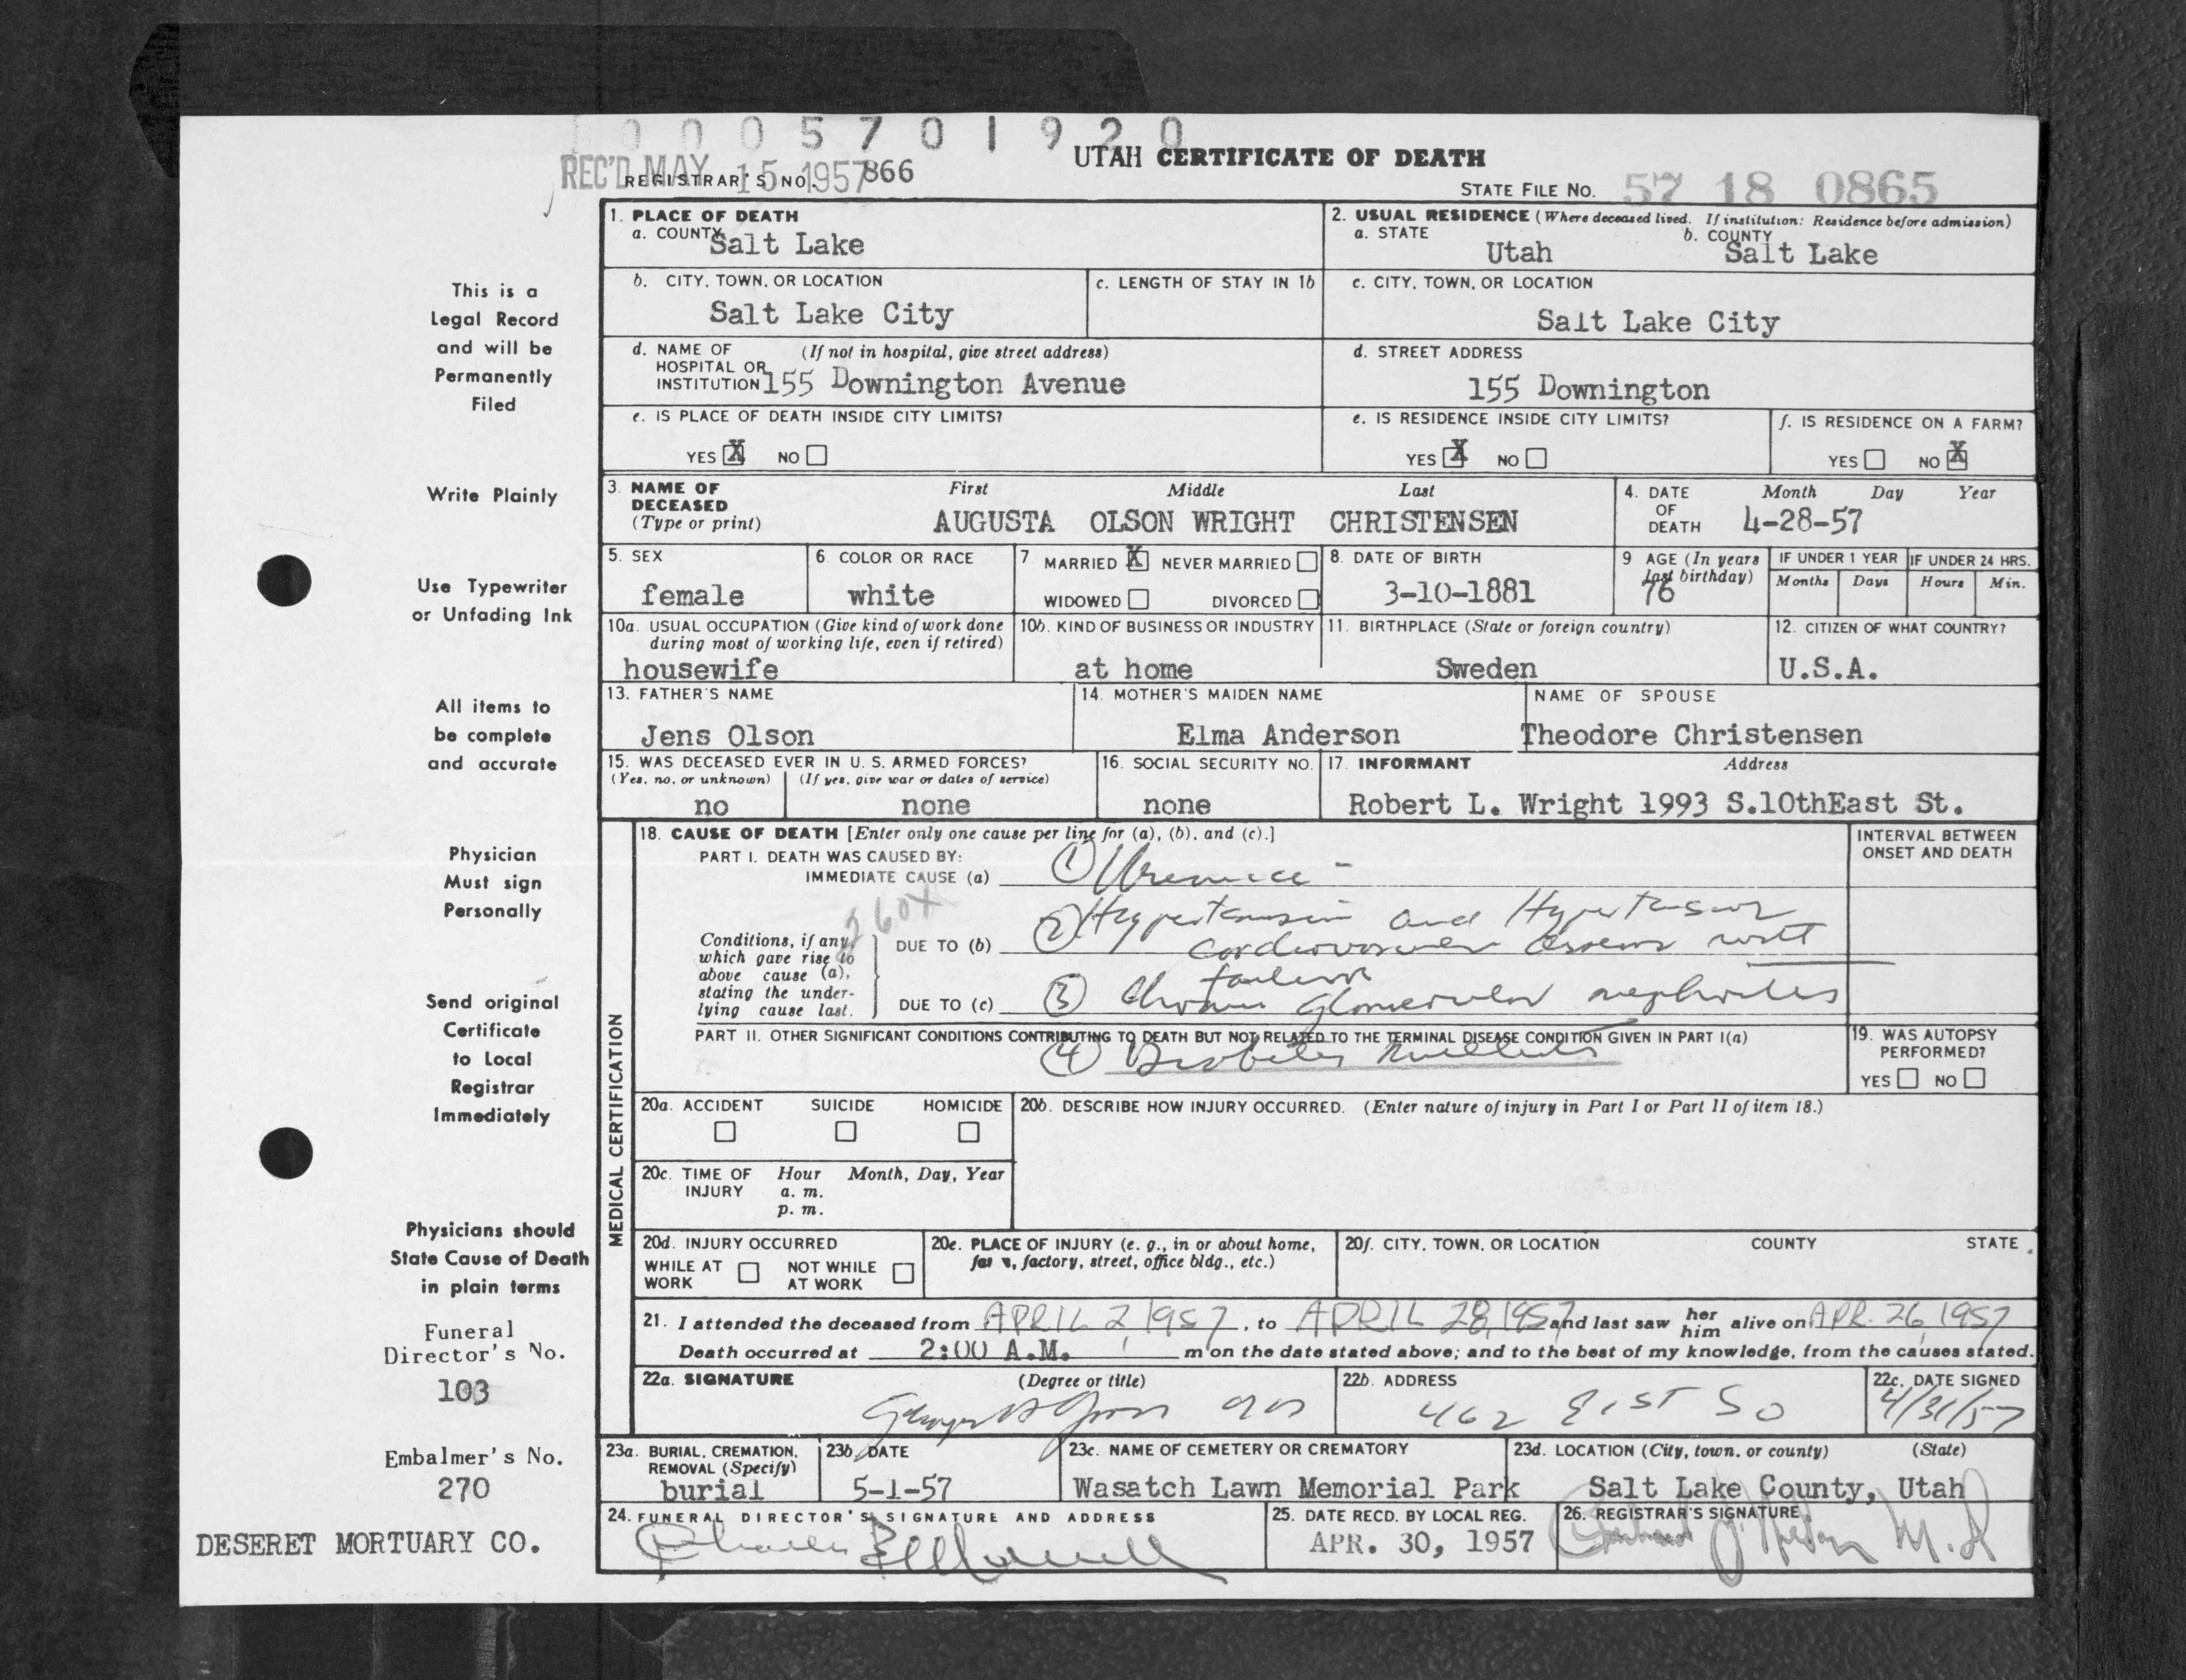 0005701920
REC'D MAY 15 1957
REGISTRAR'S NO. 866
UTAH CERTIFICATE OF DEATH
STATE FILE NO. 57 18 0865
This is a
Legal Record
and will be
Permanently
Filed
Write Plainly
Use Typewriter
or Unfading Ink
All items to
be complete
and accurate
Physician
Must sign
Personally
Send original
Certificate
to Local
Registrar
Immediately
Physicians should
State Cause of Death
in plain terms
Funeral
Director's No.
103
Embalmer's No.
270
DESERET MORTUARY CO.
1. PLACE OF DEATH
a. COUNTY
Salt Lake
2. USUAL RESIDENCE (Where deceased lived. If institution: Residence before admission)
a. STATE
Utah
b. COUNTY
Salt Lake
b. CITY, TOWN, OR LOCATION
Salt Lake City
c. LENGTH OF STAY IN 1b
c. CITY, TOWN, OR LOCATION
Salt Lake City
d. NAME OF (If not in hospital, give street address)
HOSPITAL OR
INSTITUTION 155 Downington Avenue
d. STREET ADDRESS
155 Downington
e. IS PLACE OF DEATH INSIDE CITY LIMITS?
YES X NO
e. IS RESIDENCE INSIDE CITY LIMITS?
YES X NO
f. IS RESIDENCE ON A FARM?
YES NO X
3. NAME OF
DECEASED
(Type or print)
First Middle Last
AUGUSTA OLSON WRIGHT CHRISTENSEN
4. DATE
OF
DEATH
Month Day Year
4-28-57
5. SEX
female
6. COLOR OR RACE
white
7 MARRIED X NEVER MARRIED
WIDOWED DIVORCED
8. DATE OF BIRTH
3-10-1881
9 AGE (In years
last birthday)
76
IF UNDER 1 YEAR
Months Days
IF UNDER 24 HRS.
Hours Min.
10a. USUAL OCCUPATION (Give kind of work done
during most of working life, even if retired)
housewife
10b. KIND OF BUSINESS OR INDUSTRY
at home
11. BIRTHPLACE (State or foreign country)
Sweden
12. CITIZEN OF WHAT COUNTRY?
U.S.A.
13. FATHER'S NAME
Jens Olson
14. MOTHER'S MAIDEN NAME
Elma Anderson
NAME OF SPOUSE
Theodore Christensen
15. WAS DECEASED EVER IN U. S. ARMED FORCES?
(Yes, no, or unknown) (If yes, give war or dates of service)
no none
16. SOCIAL SECURITY NO.
none
17. INFORMANT Address
Robert L. Wright 1993 S.10thEast St.
MEDICAL CERTIFICATION
18. CAUSE OF DEATH [Enter only one cause per line for (a), (b), and (c).]
PART I. DEATH WAS CAUSED BY:
IMMEDIATE CAUSE (a) 1 Uremia
260X
Conditions, if any,
which gave rise to
above cause (a),
stating the under-
lying cause last.
DUE TO (b) 2 Hypertension and Hypertensive
cardiovascular disease with
failure
DUE TO (c) 3 Chronic glomerular nephritis
INTERVAL BETWEEN
ONSET AND DEATH
PART II. OTHER SIGNIFICANT CONDITIONS CONTRIBUTING TO DEATH BUT NOT RELATED TO THE TERMINAL DISEASE CONDITION GIVEN IN PART I(a)
4 Diabetes Mellitus
19. WAS AUTOPSY
PERFORMED?
YES NO
20a. ACCIDENT SUICIDE HOMICIDE
20b. DESCRIBE HOW INJURY OCCURRED. (Enter nature of injury in Part I or Part II of item 18.)
20c. TIME OF Hour Month, Day, Year
INJURY a. m.
p. m.
20d. INJURY OCCURRED
WHILE AT NOT WHILE
WORK AT WORK
20e. PLACE OF INJURY (e. g., in or about home,
farm, factory, street, office bldg., etc.)
20f. CITY, TOWN, OR LOCATION COUNTY STATE
21. I attended the deceased from APRIL 2, 1957, to APRIL 28, 1957 and last saw her him alive on APR. 26, 1957
Death occurred at 2:00 A.M. m on the date stated above; and to the best of my knowledge, from the causes stated.
22a. SIGNATURE (Degree or title)
22b. ADDRESS
462 E 1ST SO
22c. DATE SIGNED
4/31/57
23a. BURIAL, CREMATION,
REMOVAL (Specify)
burial
23b. DATE
5-1-57
23c. NAME OF CEMETERY OR CREMATORY
Wasatch Lawn Memorial Park
23d. LOCATION (City, town, or county) (State)
Salt Lake County, Utah
24. FUNERAL DIRECTOR'S SIGNATURE AND ADDRESS
25. DATE RECD. BY LOCAL REG.
APR. 30, 1957
26. REGISTRAR'S SIGNATURE
M.D.